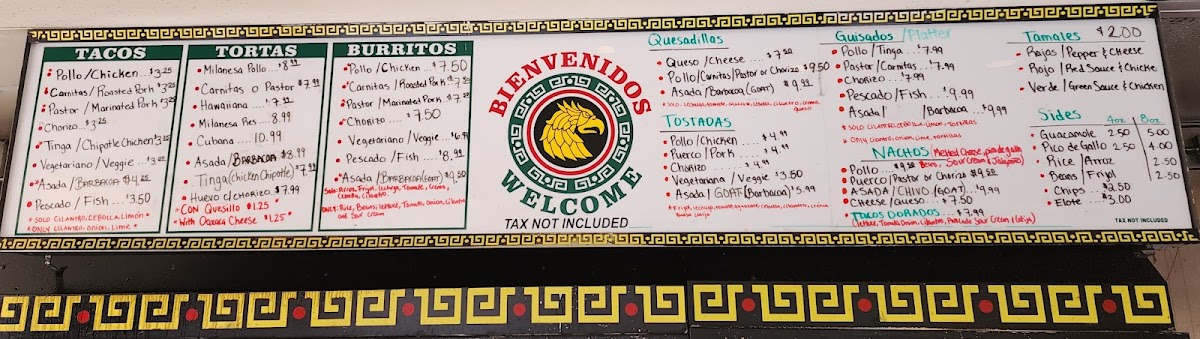 TACOS
Pollo/Chicken...$3.25
Carnitas/Roasted Pork $3.25
Pastor/Marinated Pork $3.25
Chorizo...$3.25
Tinga/Chipotle Chicken $3.25
Vegetariano/Veggie...$3.00
Asada/BARBACOA $4.25
Pescado/Fish...$3.50
*SOLO CILANTRO, CEBOLLA, LIMÓN*
*ONLY CILANTRO, ONION, LIME*
TORTAS
Milanesa Pollo...$8.99
Carnitas o Pastor $7.99
Hawaiiana...$7.99
Milanesa Res...8.99
Cubana...10.99
Asada/BARBACOA $8.99
Tinga (Chicken Chipotle) $7.99
Huevo c/chorizo.$7.99
*CON Quesillo $1.25*
*With Oaxaca Cheese $1.25*
BURRITOS
Pollo/Chicken...$7.50
Carnitas/Roasted Pork
Pastor/Marinated Pork
Chorizo...$7.50
Vegetariano/Veggie
Pescado/Fish...$8.99
Asada/BARBACOA(Goat) $9.50
Solo: Arroz, Frijol, Lechuga, Tomate, Crema, cebolla, cilantro.
ONLY: Rice, Beans, lettuce, Tomato, Onion, Cilantro and Sour Cream
BIENVENIDOS
WELCOME
TAX NOT INCLUDED
Quesadillas
Queso/Cheese...$7.50
Pollo/Carnitas/Pastor or Chorizo $9.50
Asada/Barbacoa(GOAT) $9.99
TOSTADAS
Pollo/Chicken...$4.99
Puerco/Pork...$4.99
Chorizo...$4.99
Vegetariana/Veggie...$3.50
Asada/GOAT(Barbacoa) $5.99
Guisados/Platter
Pollo/Tinga...$7.99
Pastor/Carnitas..$7.99
Chorizo...$7.99
Pescado/Fish...$9.99
Asada/ /Barbacoa...$9.99
*SOLO CILANTRO, CEBOLLA, LIMON, TORTILLAS
*ONLY CILANTRO, ONION, LIME, TORTILLAS
NACHOS Melted Cheese, pico de gallo
Beans, Sour Cream & Jalapeño
Pollo...$9.50
Puerco/Pastor or Chorizo $9.50
ASADA/CHIVO(GOAT) $9.99
CHEESE/Queso...$7.50
TACOS DORADOS...$7.99
Tamales $2.00
Rajas/Pepper & Cheese
Rojo/Red Sauce & Chicken
Verde/Green Sauce & Chicken
Sides 4oz. 8oz
Guacamole 2.50 5.00
Pico de Gallo 2.50 4.00
Rice/Arroz 2.50
Beans/Frijol 2.50
Chips...$2.50
Elote...$3.00
TAX NOT INCLUDED